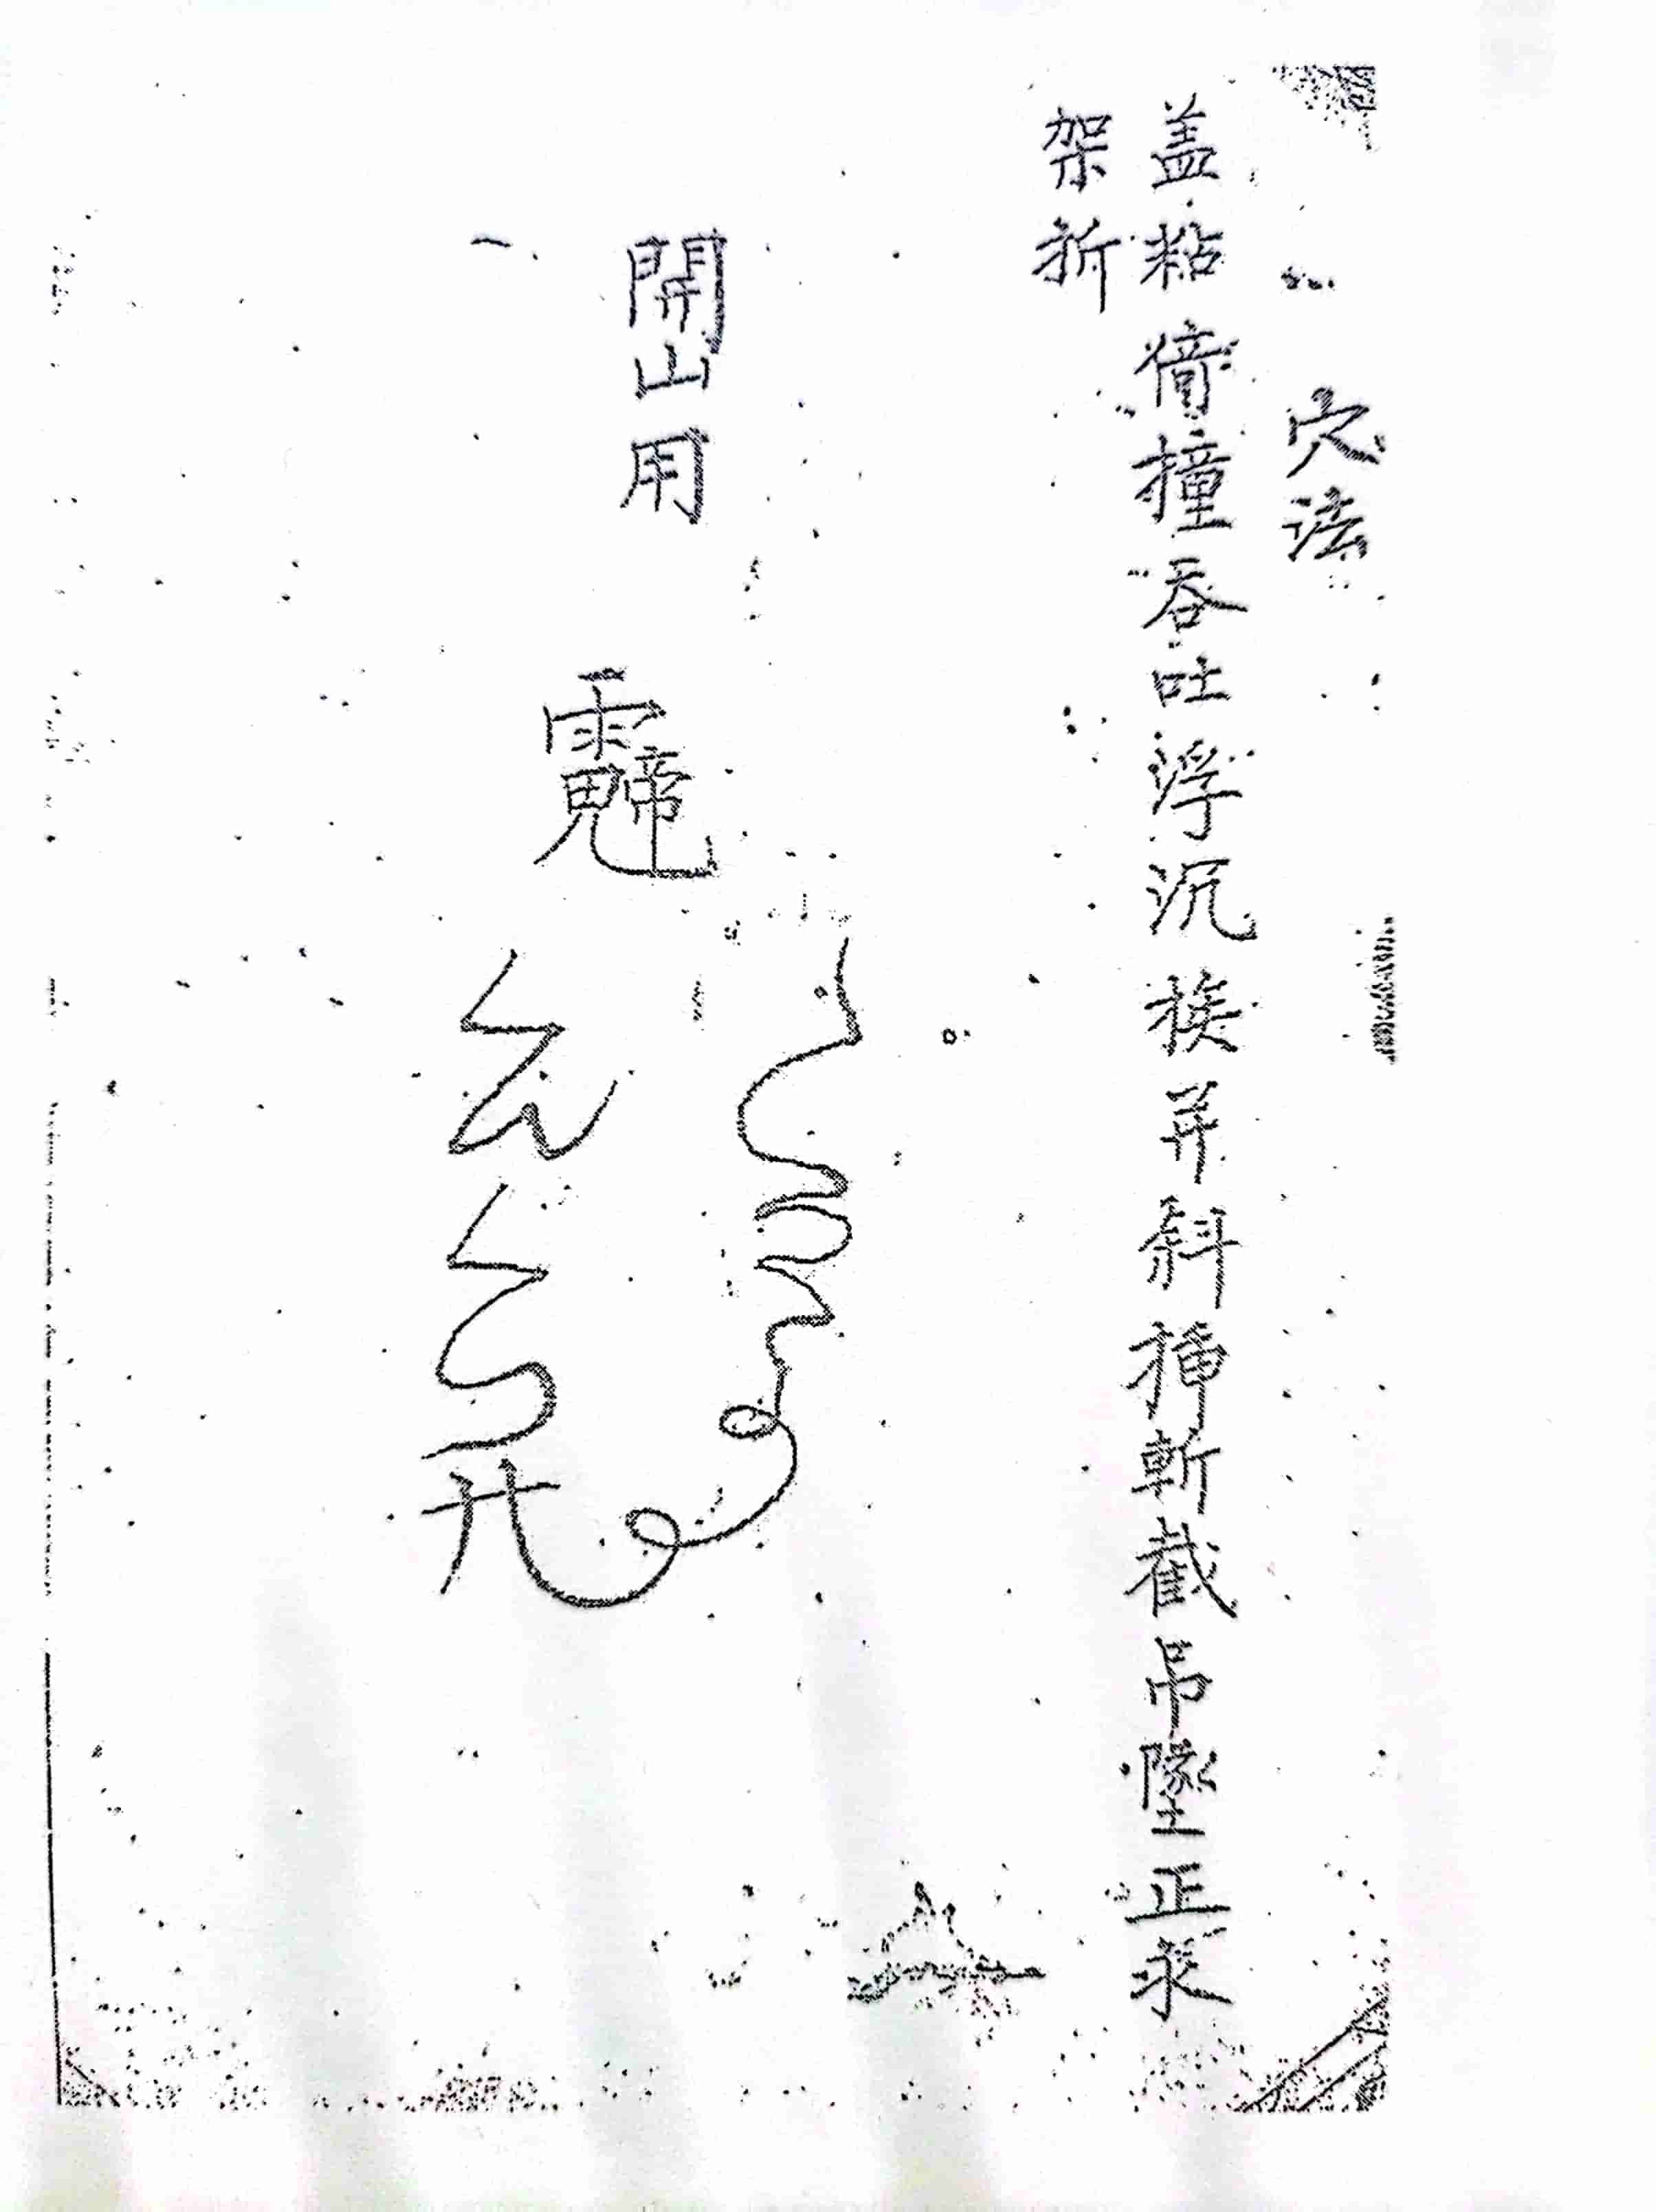 穴法
盖粘倚撞吞吐浮沉挨弃斜揷斬截吊墜正求
架折
開山用